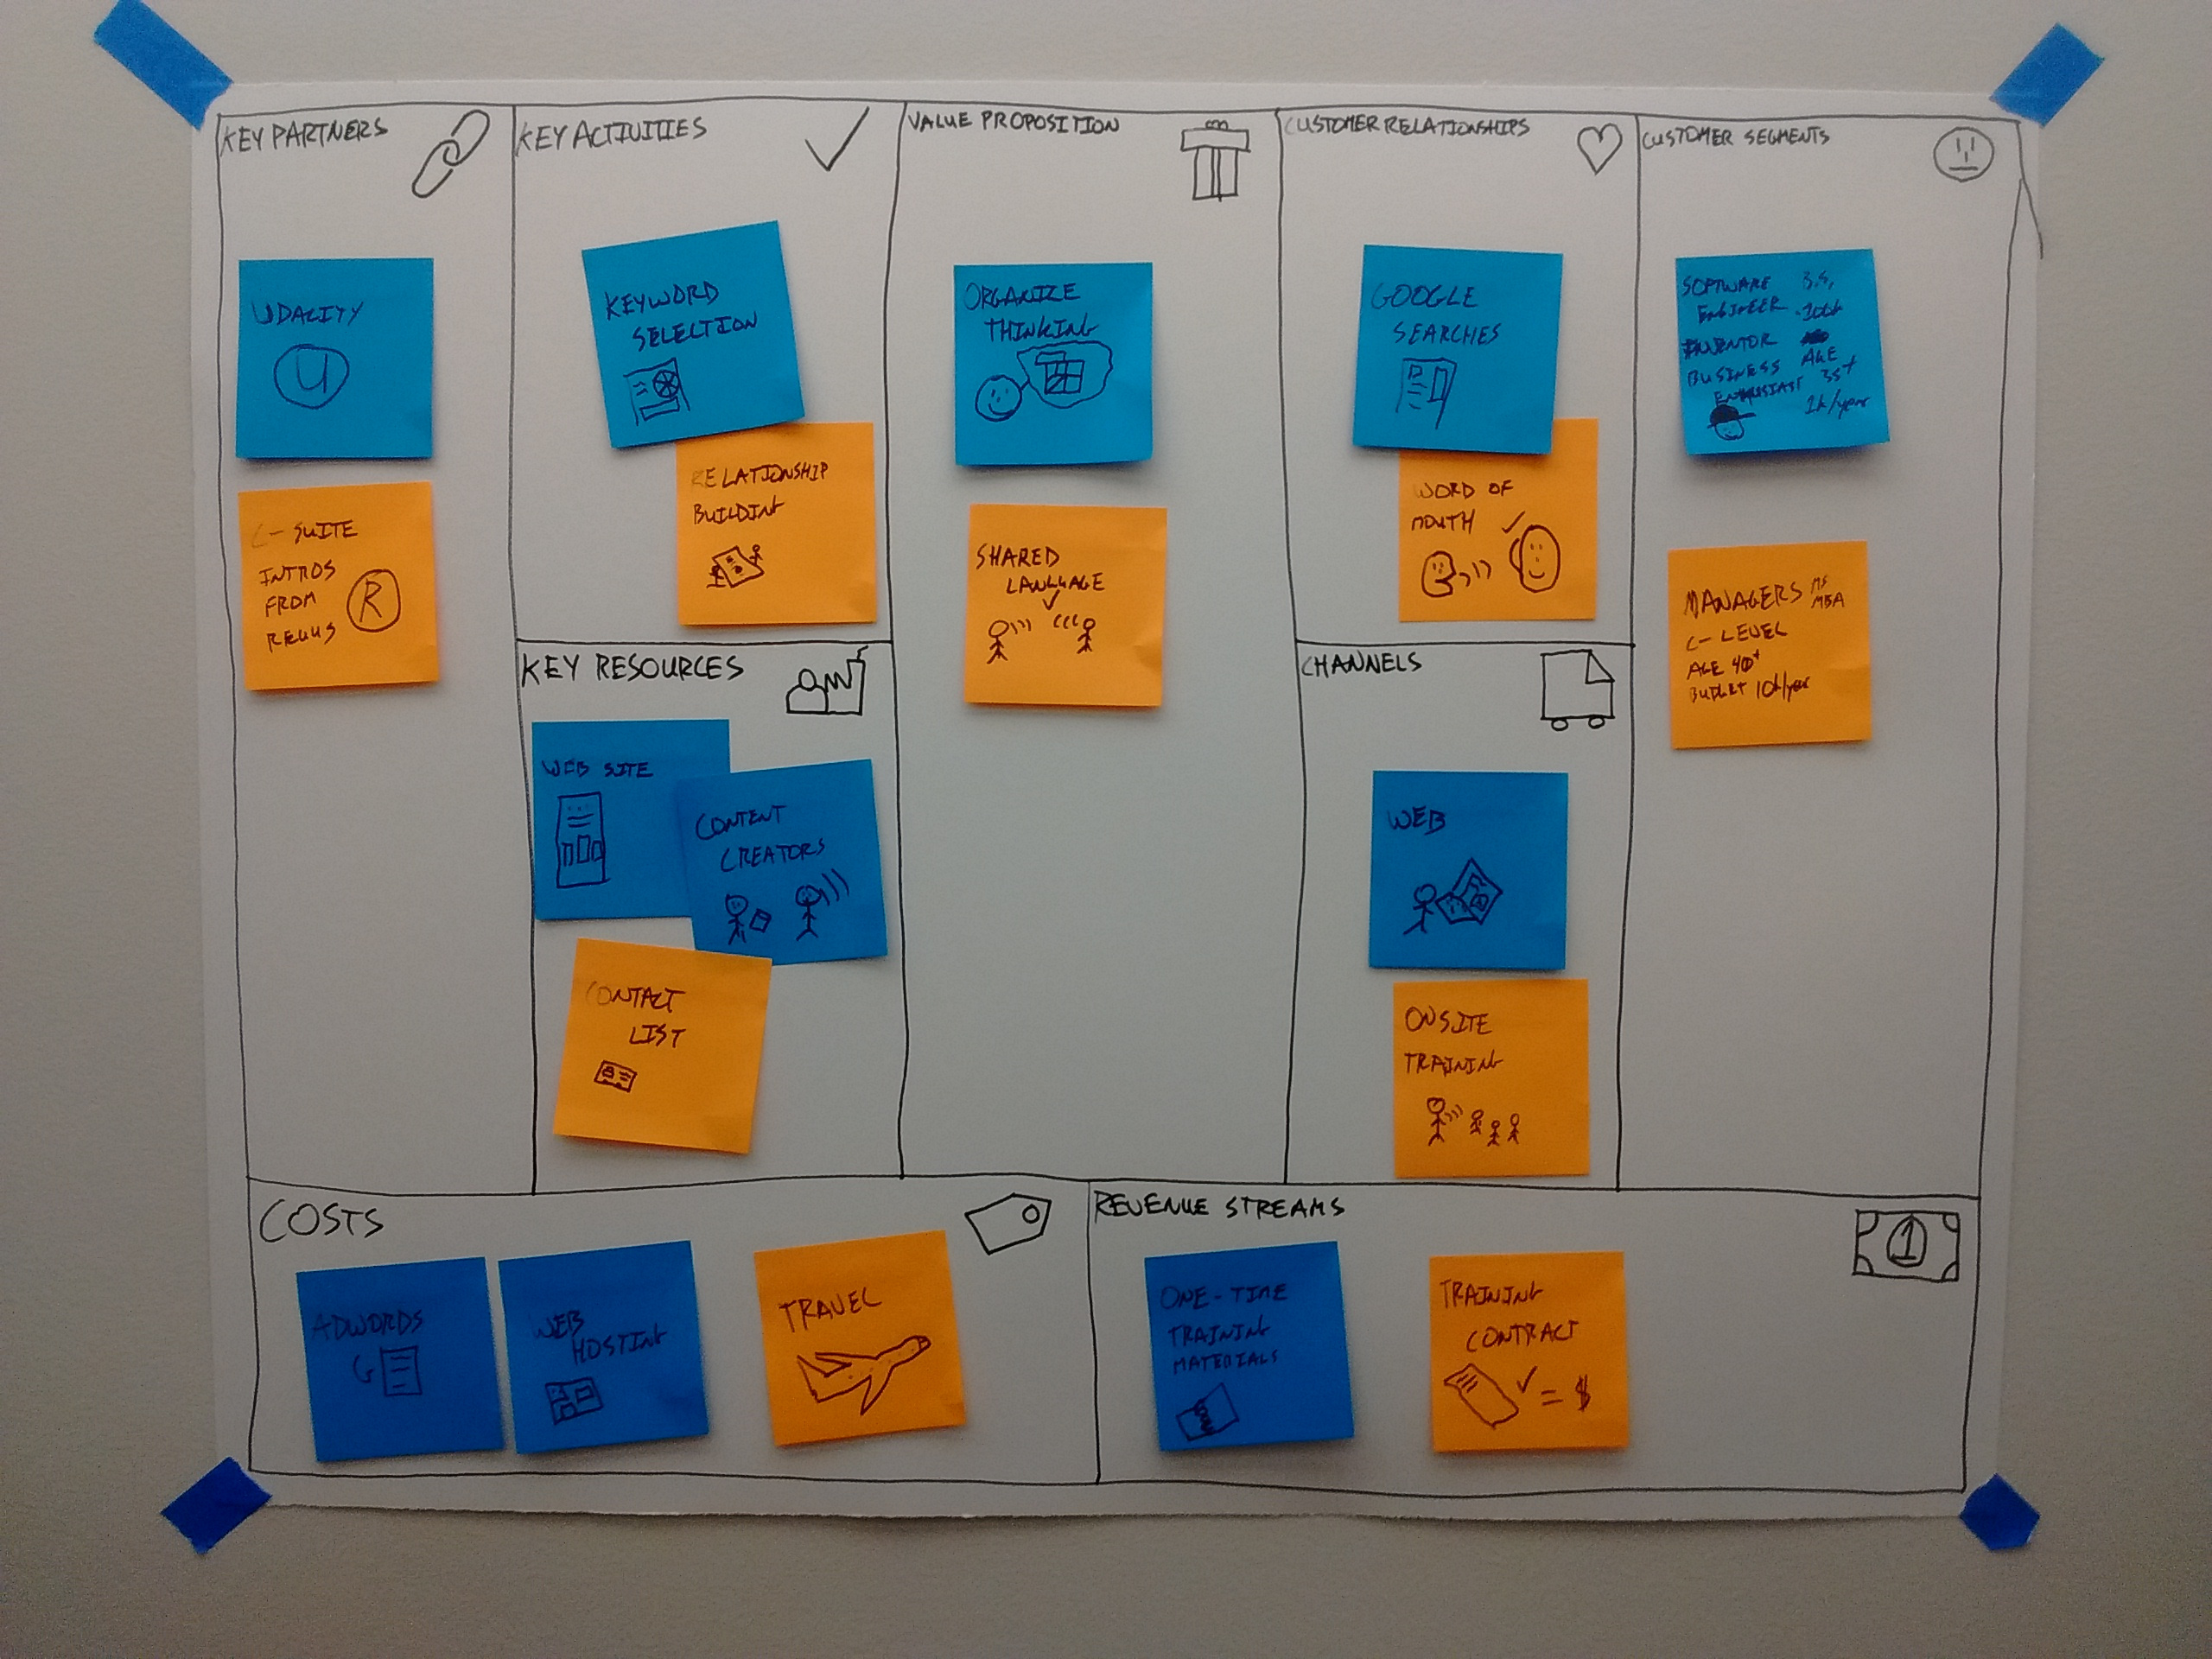 KEY PARTNERS
UDACITY
U
C-SUITE
INTROS
FROM
R
REGUS
KEY ACTIVITIES
KEYWORD
SELECTION
RELATIONSHIP
BUILDING
KEY RESOURCES
WEB SITE
CONTENT
CREATORS
CONTACT
LIST
VALUE PROPOSITION
ORGANIZE
THINKING
SHARED
LANGUAGE
CUSTOMER RELATIONSHIPS
GOOGLE
SEARCHES
WORD OF
MOUTH
CHANNELS
WEB
ONSITE
TRAINING
CUSTOMER SEGMENTS
SOFTWARE B.S.
ENGINEER
INVENTOR
BUSINESS AGE
ENTHUSIAST 35+
1k/year
MANAGERS MS
MBA
C-LEVEL
AGE 40+
BUDGET 10k/year
COSTS
ADWORDS
G
WEB
HOSTING
TRAVEL
REVENUE STREAMS
1
ONE-TIME
TRAINING
MATERIALS
TRAINING
CONTRACT
= $